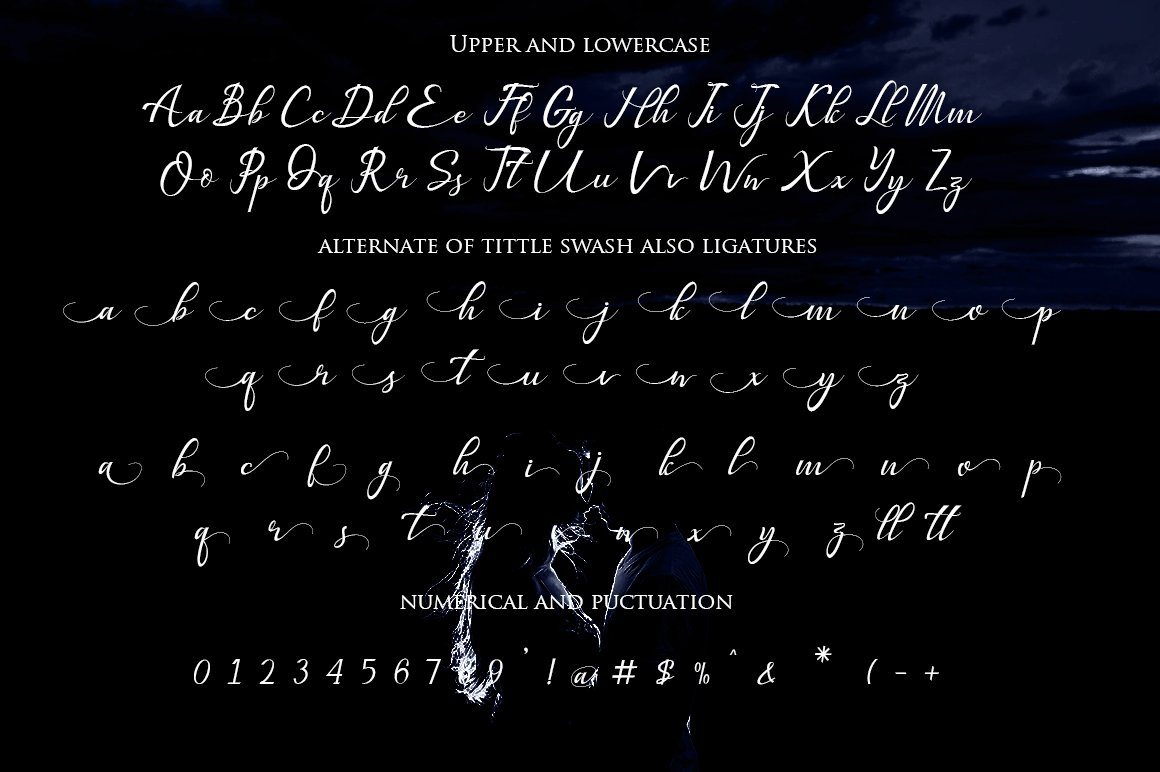 Upper and lowercase
Aa Bb Cc Dd Ee Ff Gg Hh Ii Jj Kk Ll Mm
Oo Pp Qq Rr Ss Tt Uu Vv Wn Xx Yy Zz
alternate of tittle swash also ligatures
a b c f g h i j k l m n o p
q r s t u v n x y z
a b c f g h i j k l m n o p
q r s t u v n x y z ll tt
numerical and puctuation
0 1 2 3 4 5 6 7 8 9 ' ! @ # $ % ^ & * ( - +